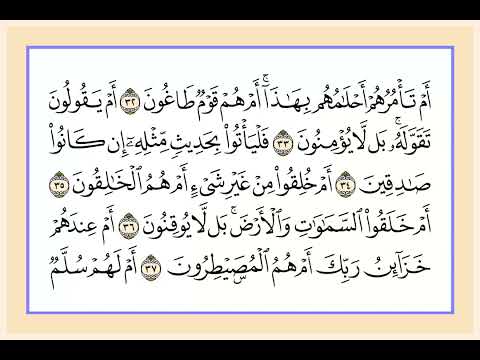 أَمْ تَأْمُرُهُمْ أَحْلَٰمُهُم بِهَٰذَآ ۚ أَمْ هُمْ قَوْمٌ طَاغُونَ ٣٢ أَمْ يَقُولُونَ
تَقَوَّلَهُۥ ۚ بَل لَّا يُؤْمِنُونَ ٣٣ فَلْيَأْتُوا۟ بِحَدِيثٍ مِّثْلِهِۦٓ إِن كَانُوا۟
صَٰدِقِينَ ٣٤ أَمْ خُلِقُوا۟ مِنْ غَيْرِ شَىْءٍ أَمْ هُمُ ٱلْخَٰلِقُونَ ٣٥
أَمْ خَلَقُوا۟ ٱلسَّمَٰوَٰتِ وَٱلْأَرْضَ ۚ بَل لَّا يُوقِنُونَ ٣٦ أَمْ عِندَهُمْ
خَزَآئِنُ رَبِّكَ أَمْ هُمُ ٱلْمُصَۣيْطِرُونَ ٣٧ أَمْ لَهُمْ سُلَّمٌ